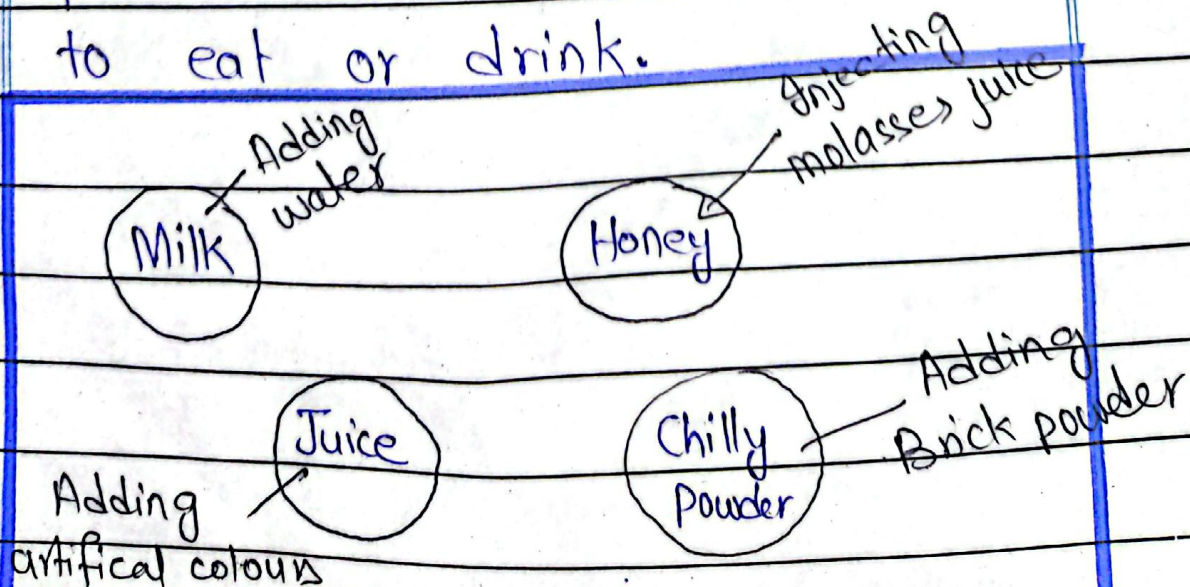 to eat or drink.
Adding
water
Milk
Injecting
molasses juice
Honey
Juice
Adding
artifical colours
Chilly
Powder
Adding
Brick powder